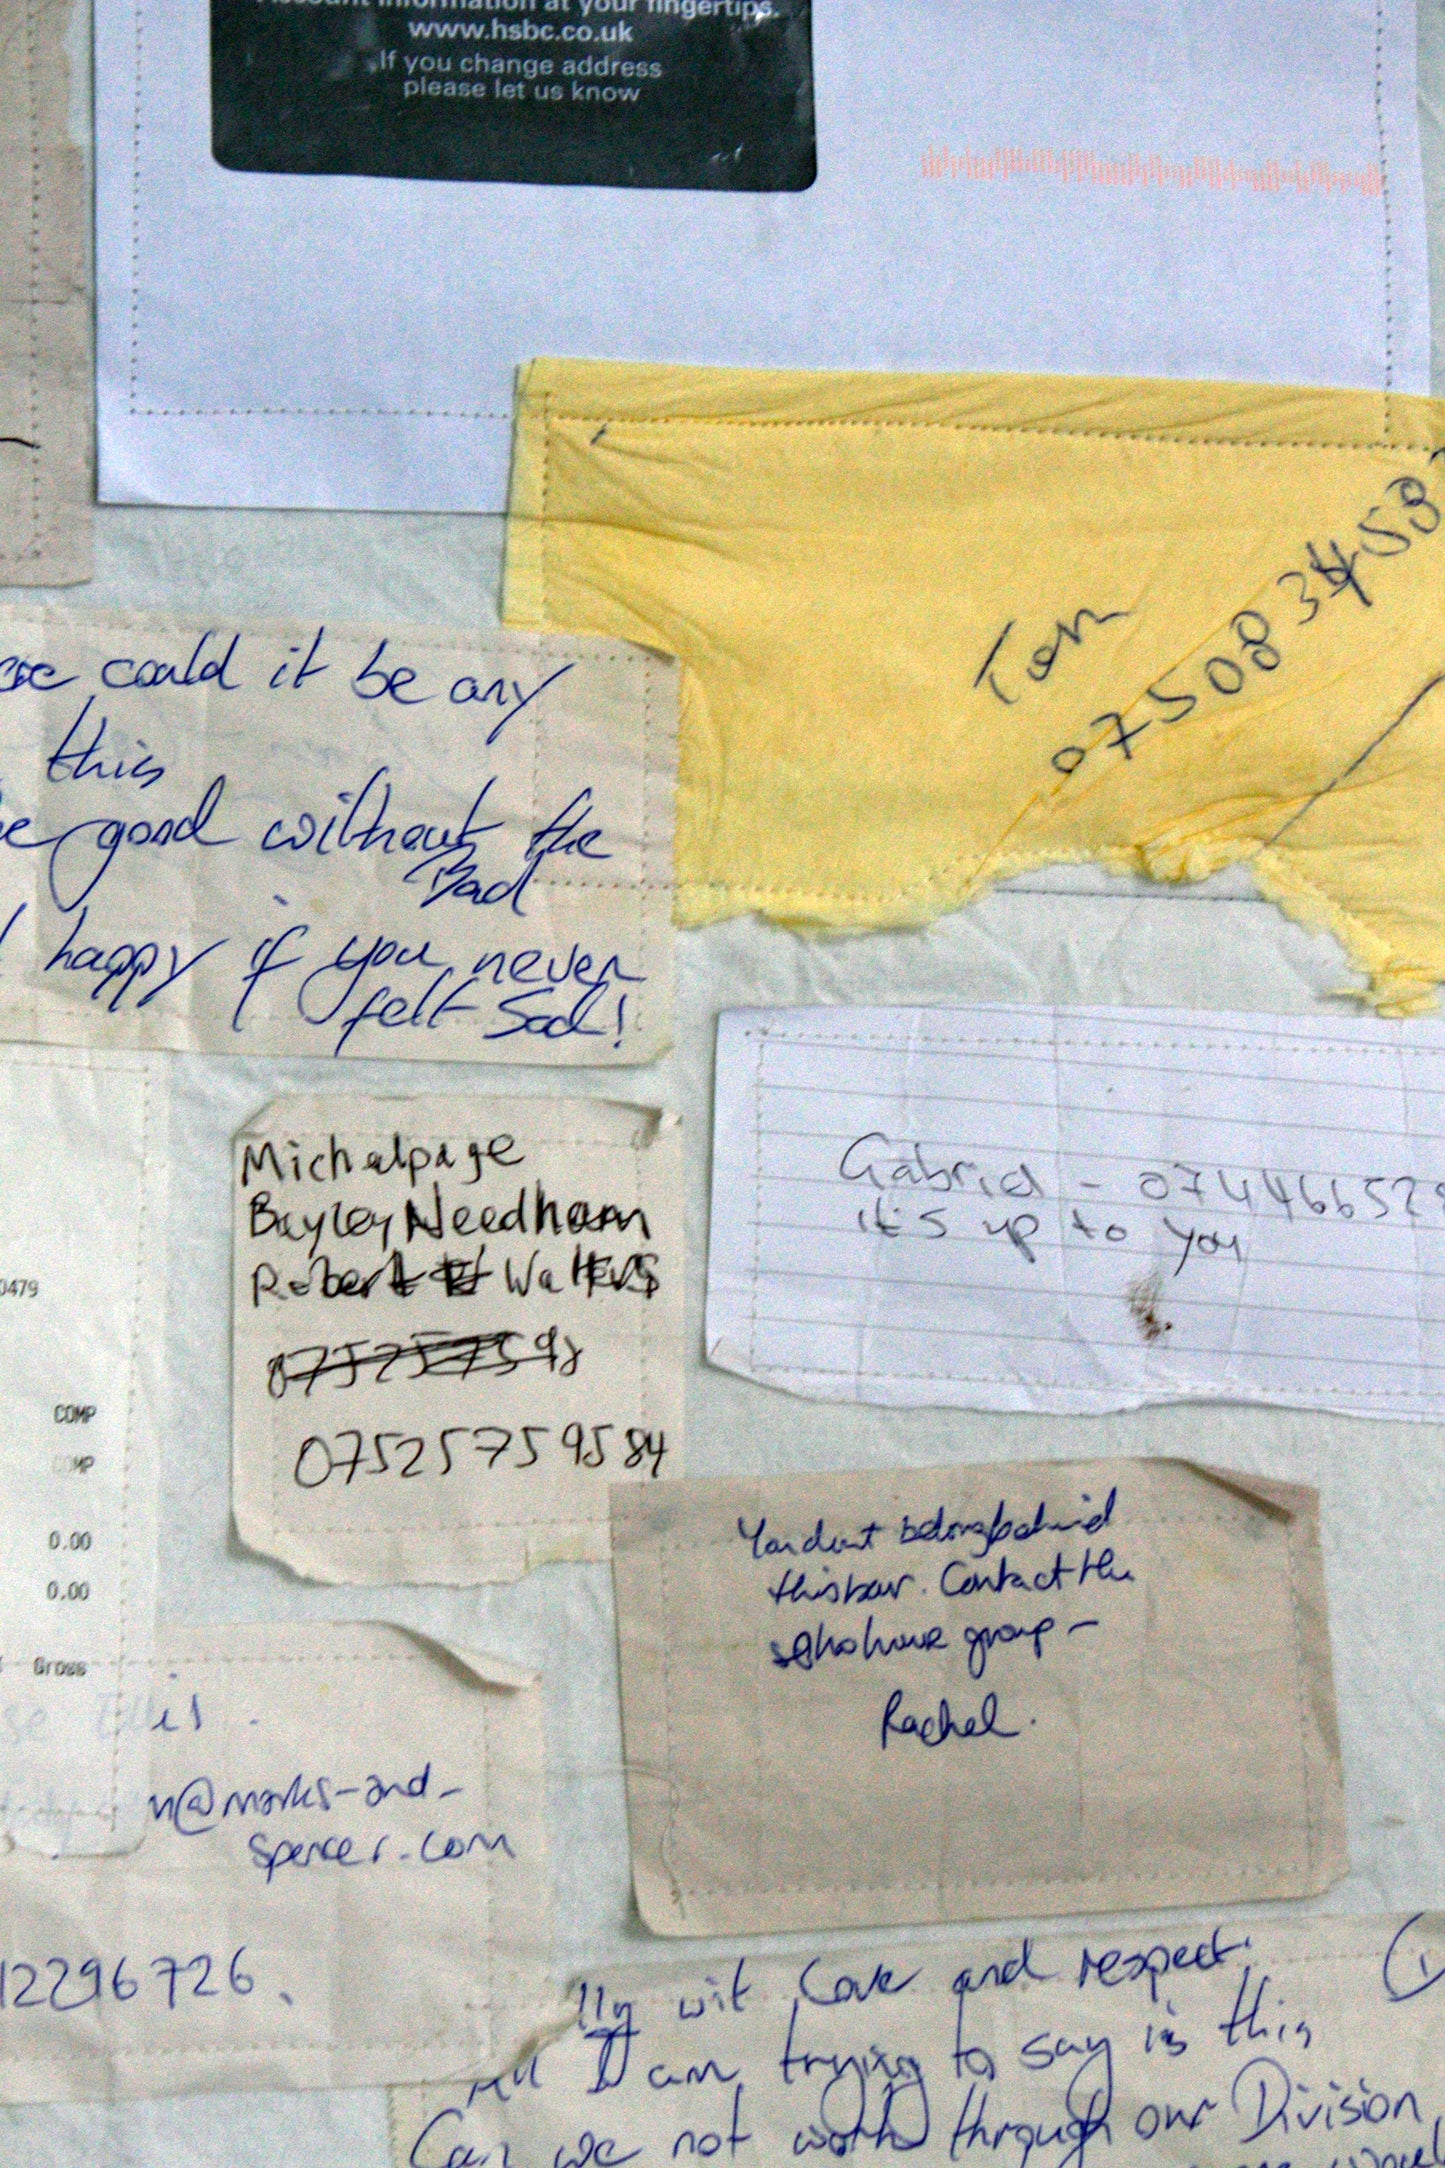 Account information at your fingertips.
www.hsbc.co.uk
If you change address
please let us know
Tom
075083458
could it be any
this
good without the
Bad
happy if you never
felt Sad!
Michalpage
Bayley Needham
Robert Walters
0752575 98
07525759584
Gabriel - 074466529
it's up to you
0479
COMP
MP
0.00
0.00
Gross
You dont belong behind
this bar. Contact the
sohohouse group -
Rachel.
n@marks-and-
spencer.com
12296726.
lly wit Love and respect.
All I am trying to say is this
Can we not work through our Division